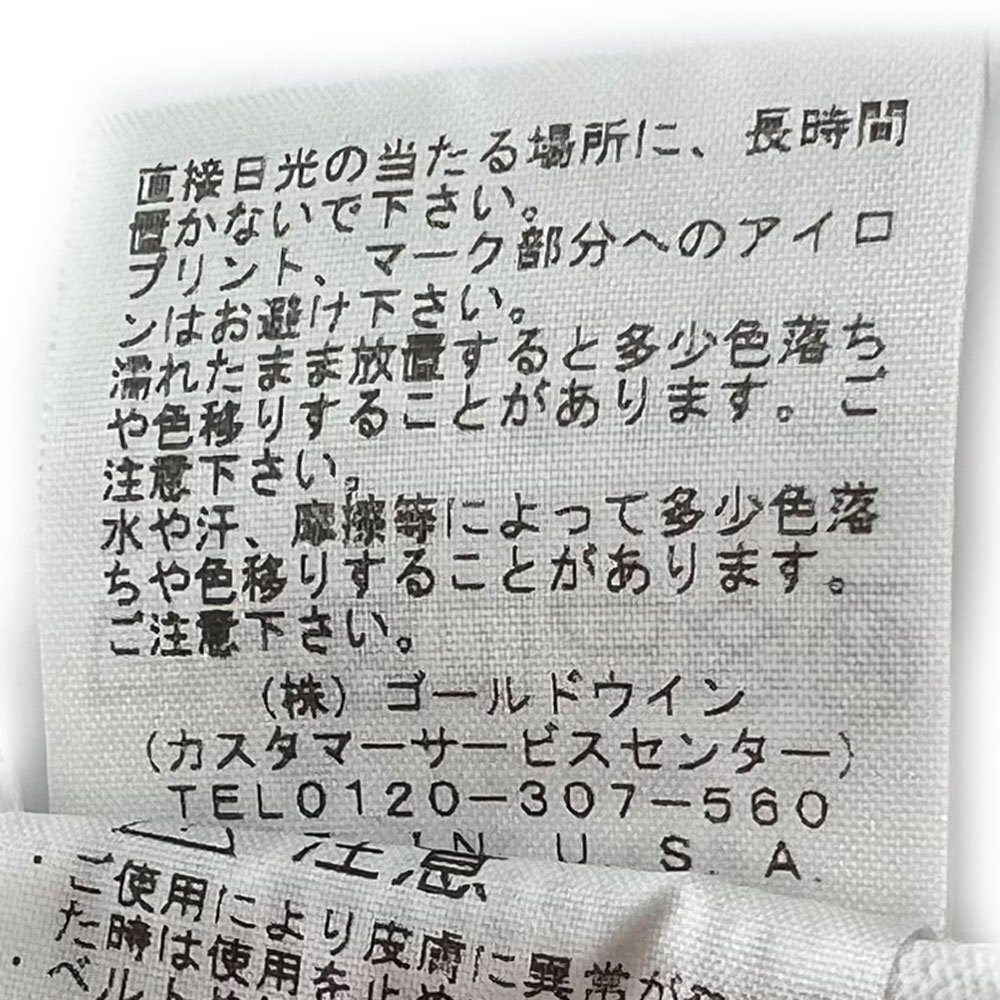 直接日光の当たる場所に、長時間
置かないで下さい。
プリント、マーク部分へのアイロ
ンはお避け下さい。
濡れたまま放置すると多少色落ち
や色移りすることがあります。ご
注意下さい。
水や汗、摩擦等によって多少色落
ちや色移りすることがあります。
ご注意下さい。
(株)ゴールドウイン
(カスタマーサービスセンター)
TEL0120-307-560
IN U.S.A.
注意
・ご使用により皮膚に異常が
た時は使用を
・ベルト